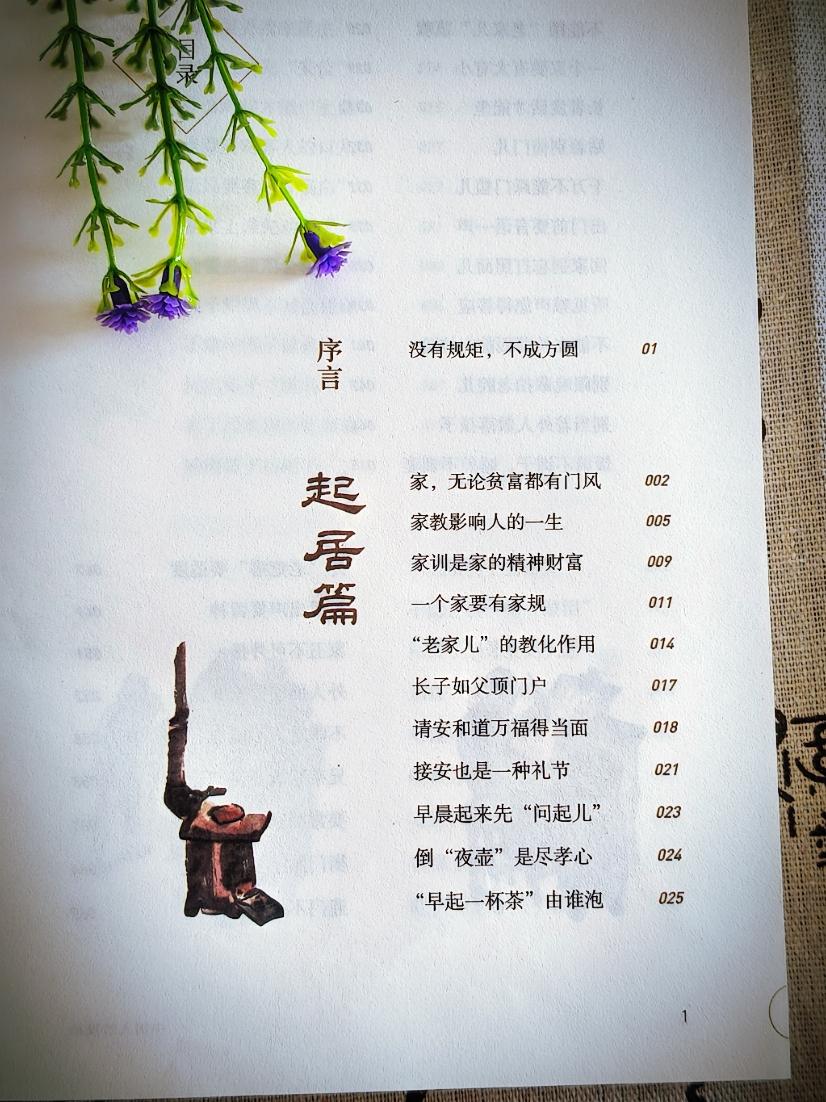 目录
序言
没有规矩，不成方圆 01
起居篇
家，无论贫富都有门风 002
家教影响人的一生 005
家训是家的精神财富 009
一个家要有家规 011
“老家儿”的教化作用 014
长子如父顶门户 017
请安和道万福得当面 018
接安也是一种礼节 021
早晨起来先“问起儿” 023
倒“夜壶”是尽孝心 024
“早起一杯茶”由谁泡 025
1